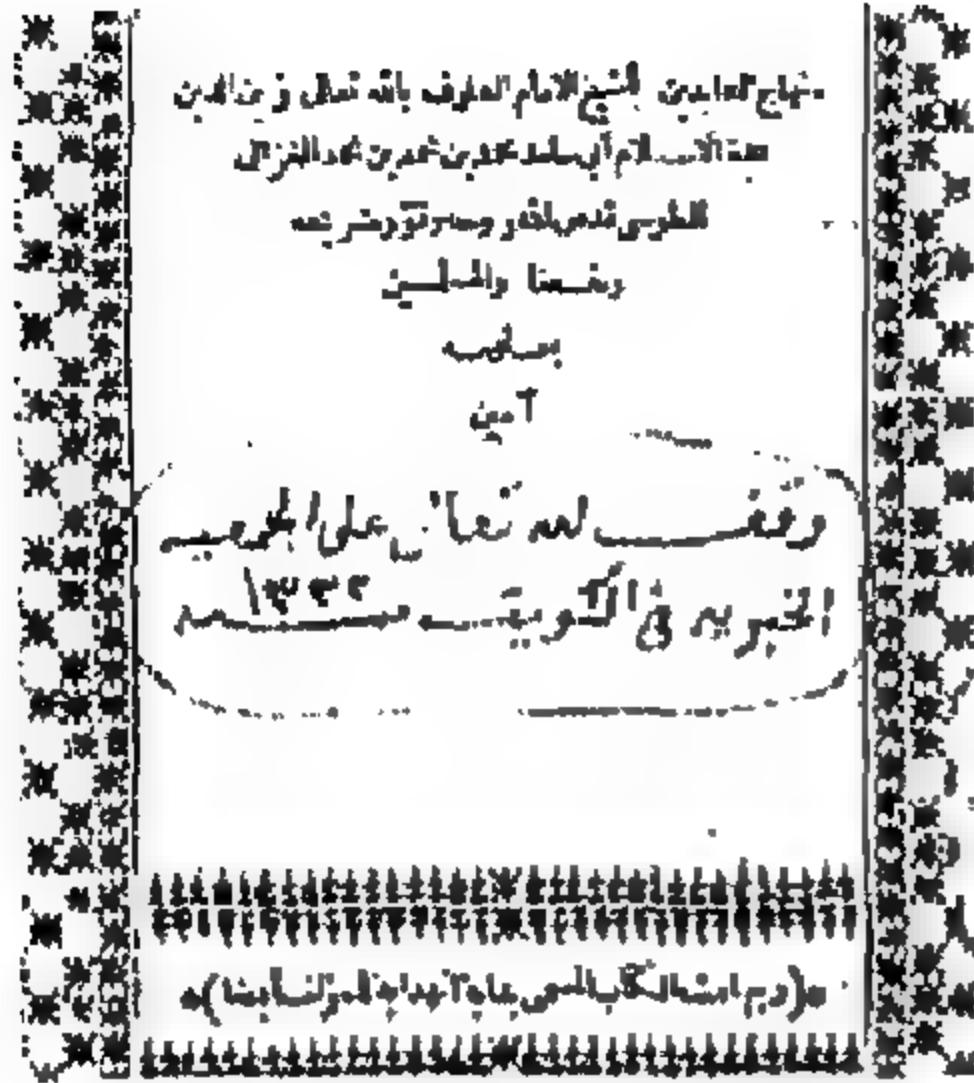 منهاج العابدين للشيخ الامام العارف بالله تعالى زين الدين
حجة الاسلام أبى حامد محمد بن محمد بن محمد الغزالى
الطوسى قدس الله روحه ونور ضريحه
ونفعنا والمسلمين
بعلومه
آمين
وقف لله تعالى على الجمعيه
الخيريه فى الكويت سنه ١٣٣٢
*(وبهامشه الكتاب المسمى بداية الهداية للمؤلف أيضا)*